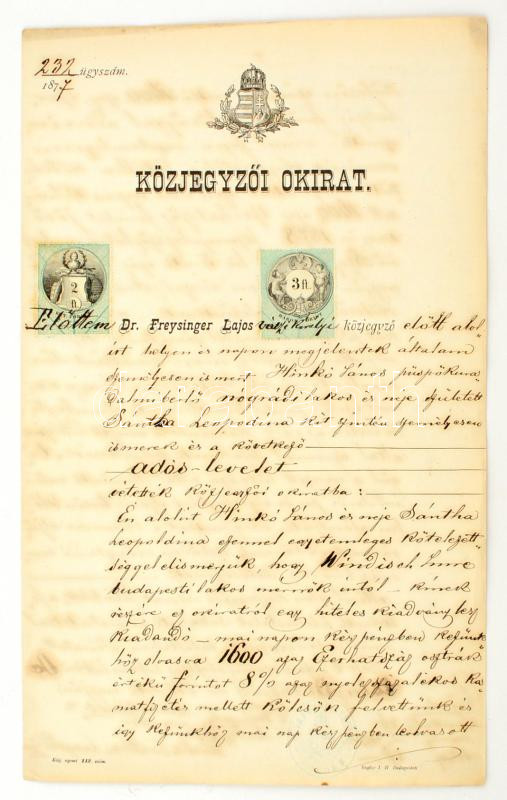 232 ügyszám.
1877
KÖZJEGYZŐI OKIRAT.
2 ft.
3 ft.
Előttem Dr. Freysinger Lajos váczi királyi közjegyző előtt alol
irt helyen és napon megjelentek általam
személyesen ismert Hinkó János püspöki ura
dalmi bérlő nógrádi lakos és neje született
Sántha Leopoldina kit szintén személyesen
ismerek és a következő
adós-levelet
vétették közjegyzői okiratba:
Én alolirt Hinkó János és neje Sántha
Leopoldina ezennel egyetemleges kötelezett
séggel elismerjük, hogy Windisch Imre
budapesti lakos mérnök úrtól – kinek
részére ez okiratról egy hiteles kiadvány lesz
kiadandó – mai napon készpénzben kezünk
höz olvasva 1600 azaz Ezerhatszáz osztrák
értékű forintot 8% azaz nyolcz százalékos ka
matfizetés mellett kölcsön felvettünk és
így kezünkhöz mai nap készpénzben leolvasott
Közj. nyomt. 112. szám.
Budapesten